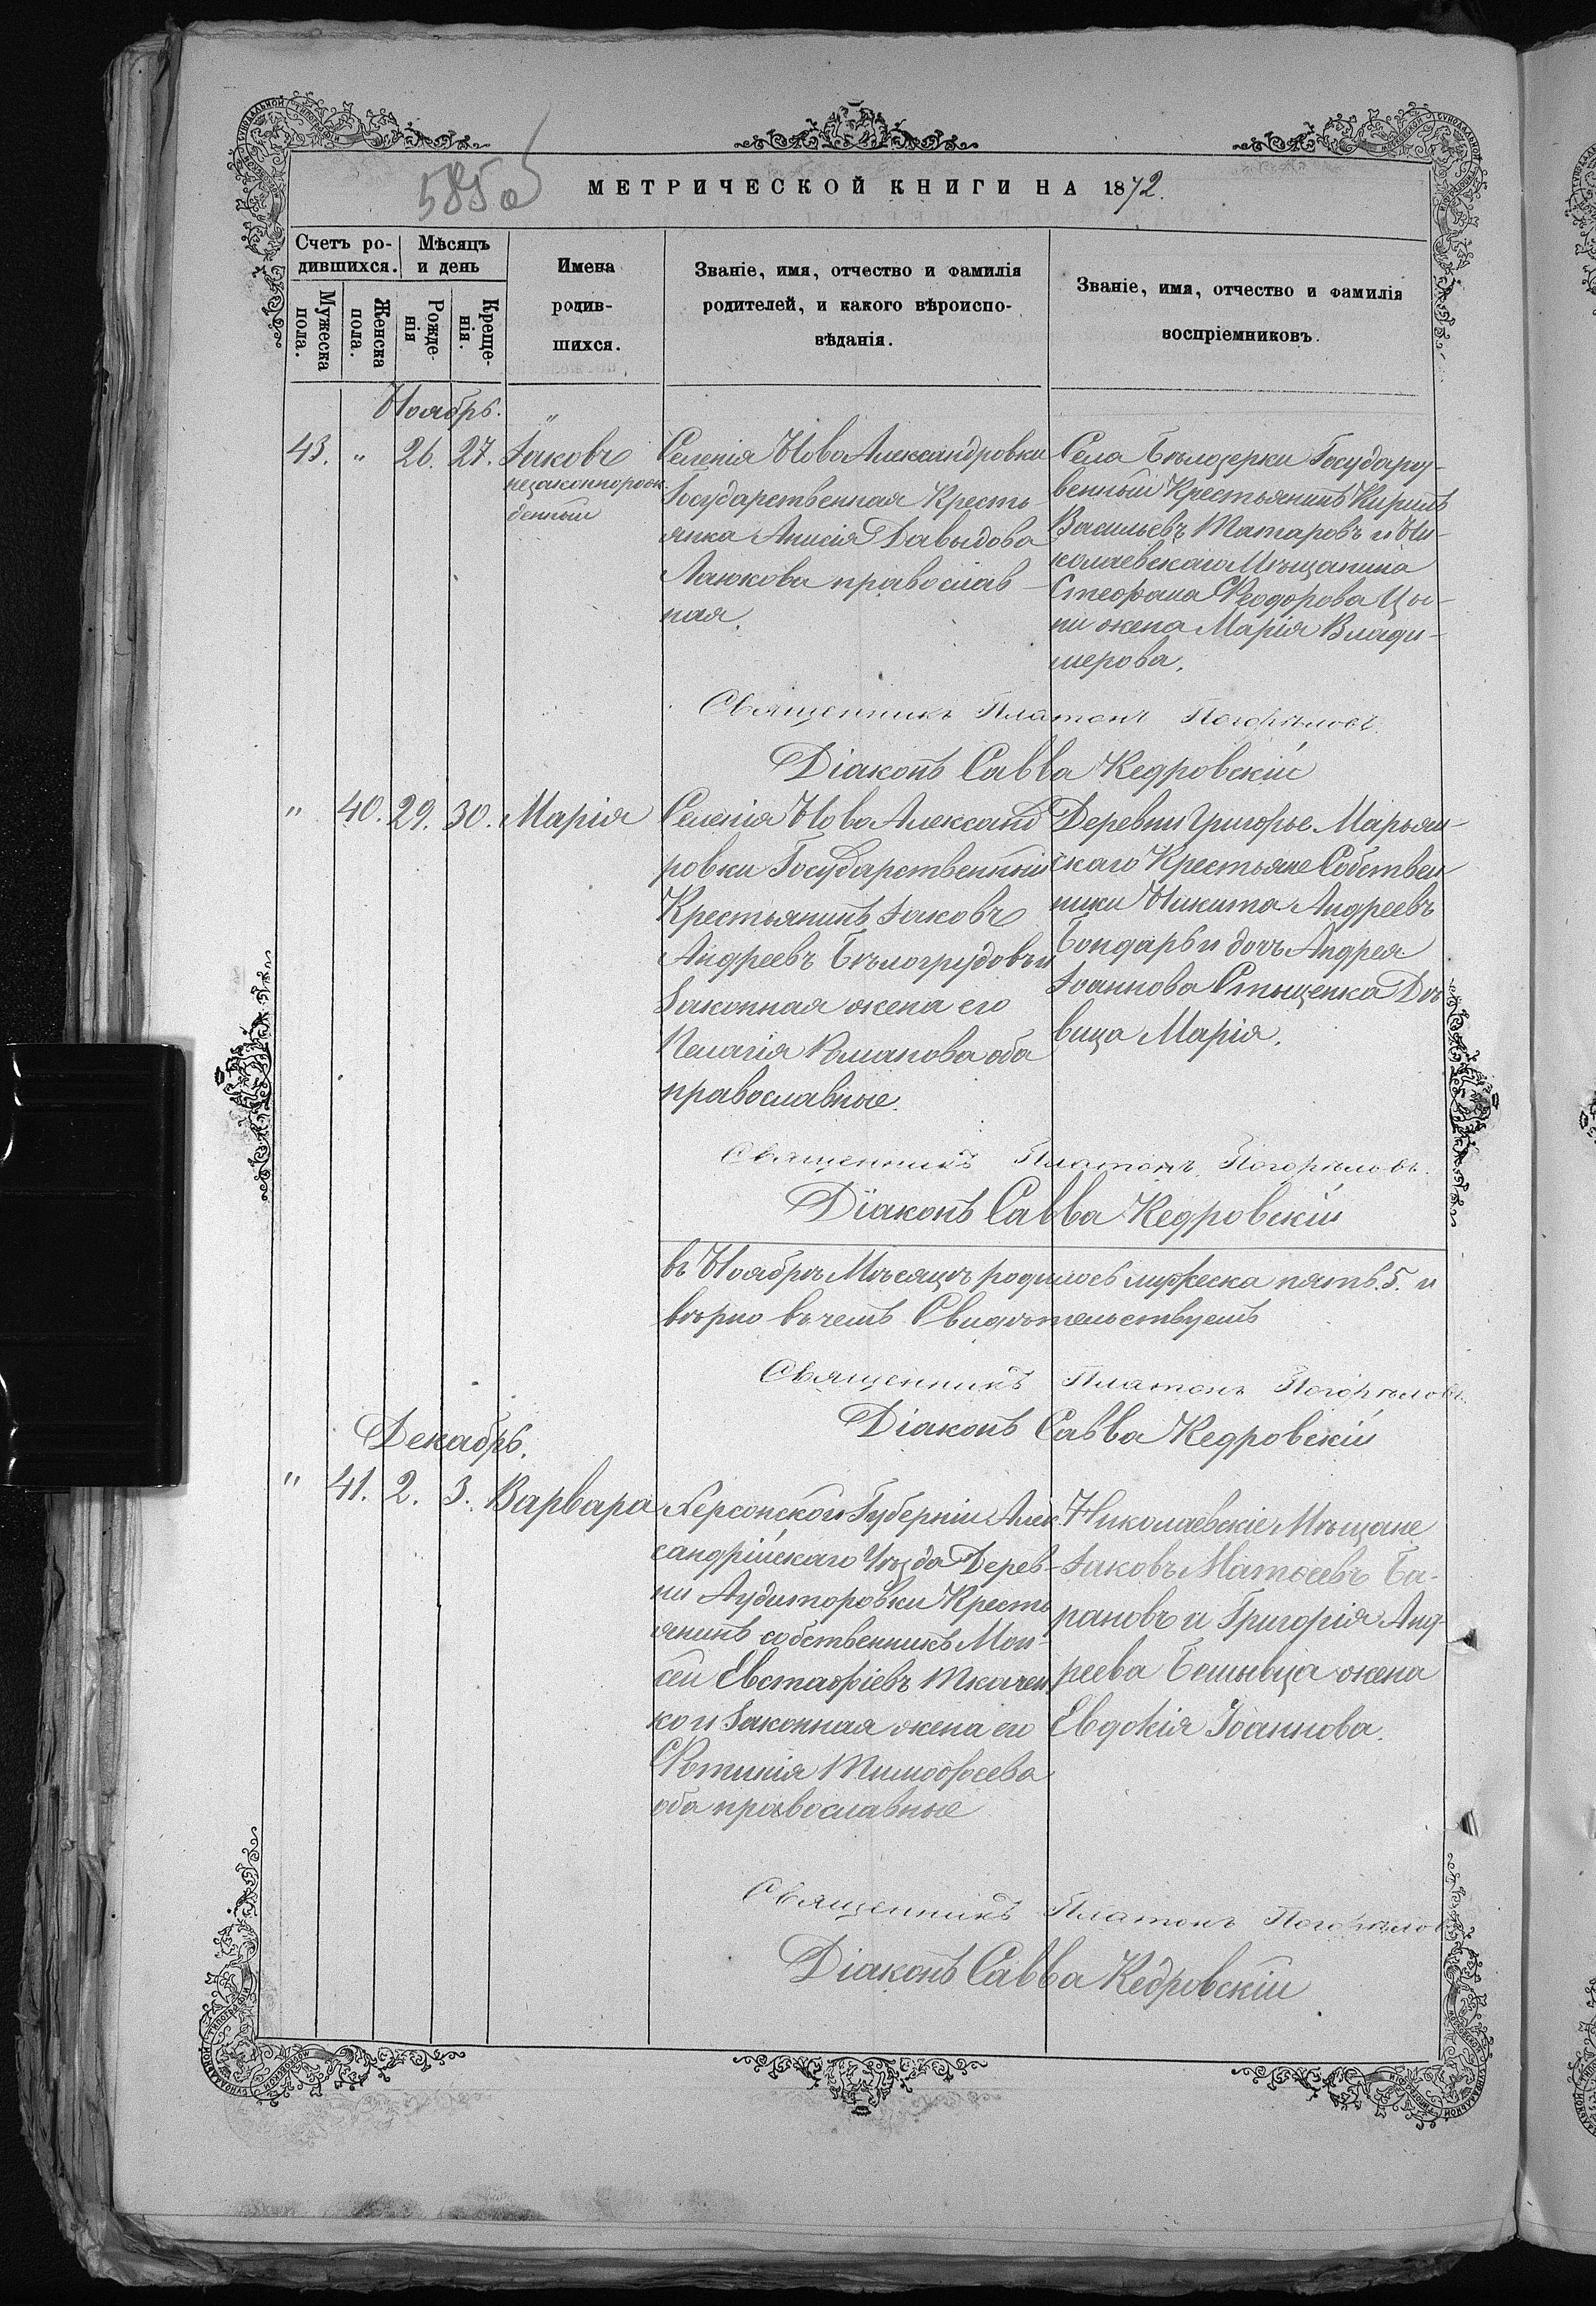 585 об
МЕТРИЧЕСКОЙ КНИГИ НА 1872.
Счетъ ро-
дившихся.
Мѣсяцъ
и день
Мужеска
пола.
Женска
пола.
Рожде-
нія
Креще-
нія.
Имена
родив-
шихся.
Званіе, имя, отчество и фамилія
родителей, и какого вѣроиспо-
вѣданія.
Званіе, имя, отчество и фамилія
воспріемниковъ.
Ноябрь.
43. " 26. 27. Іаковъ
незаконнорож
денный
Селенія Ново Александровки
Государственная Кресть
янка Анисія Давыдова
Лаюкова православ-
ная.
Села Бѣлозерки Государс-
венный Крестьянинъ Кирилъ
Васильевъ Татаровъ и Ни-
колаевскаго Мѣщанина
Стефана Феодорова
жена Марія Влади-
мерова.
Священникъ Платонъ Погорѣловъ
Діаконъ Савва Кедровскій
" 40. 29. 30. Марія
Селенія Ново Александ
ровки Государственный
Крестьянинъ Іаковъ
Андреевъ Бѣлогрудовъ и
Законная жена его
Пелагія Романова оба
православные.
Деревни Григорье Марьян-
скаго Крестьяне Собствен
ники Никита Андреевъ
Бондарь и дочь Андрея
Іоаннова Стыщенка Дѣ
вица Марія.
Священникъ Платонъ Погорѣловъ.
Діаконъ Савва Кедровскій
въ Ноябрѣ Мѣсяцѣ родилось мужеска пять. 5. и
вѣрно въ чемъ Свидѣтельствуемъ
Священникъ Платонъ Погорѣловъ.
Діаконъ Савва Кедровскій
Декабрь.
" 41. 2. 3. Варвара
Херсонской Губерніи Алек
сандрійскаго Уѣзда Дерев-
ни Аудиторовки Кресть
янинъ собственникъ Мои-
сей Евстафіевъ Ткачен
ко и Законная жена его
Фотинія Тимофеева
оба православные
Николаевскіе Мѣщане
Іаковъ Матѳеевъ Ба-
рановъ и Григорія Анд-
реева жена
Евдокія Іоаннова.
Священникъ Платонъ Погорѣловъ
Діаконъ Савва Кедровскій